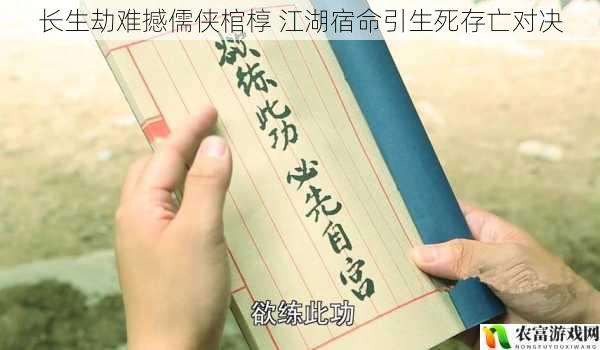 长生劫难撼儒侠棺椁 江湖宿命引生死存亡对决
欲练此功
必先自宫
欲练此功
农富游戏网
NONGFUYOUXIWANG